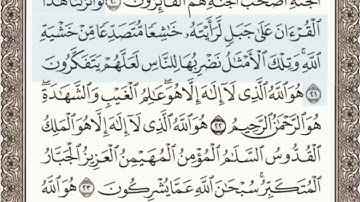 ٱلْجَنَّةِ أَصْحَٰبُ ٱلْجَنَّةِ هُمُ ٱلْفَآئِزُونَ ٢٠ لَوْ أَنزَلْنَا هَٰذَا
ٱلْقُرْءَانَ عَلَىٰ جَبَلٍ لَّرَأَيْتَهُۥ خَٰشِعًا مُّتَصَدِّعًا مِّنْ خَشْيَةِ
ٱللَّهِ ۚ وَتِلْكَ ٱلْأَمْثَٰلُ نَضْرِبُهَا لِلنَّاسِ لَعَلَّهُمْ يَتَفَكَّرُونَ
٢١ هُوَ ٱللَّهُ ٱلَّذِى لَآ إِلَٰهَ إِلَّا هُوَ ۖ عَٰلِمُ ٱلْغَيْبِ وَٱلشَّهَٰدَةِ ۖ
هُوَ ٱلرَّحْمَٰنُ ٱلرَّحِيمُ ٢٢ هُوَ ٱللَّهُ ٱلَّذِى لَآ إِلَٰهَ إِلَّا هُوَ ٱلْمَلِكُ
ٱلْقُدُّوسُ ٱلسَّلَٰمُ ٱلْمُؤْمِنُ ٱلْمُهَيْمِنُ ٱلْعَزِيزُ ٱلْجَبَّارُ
ٱلْمُتَكَبِّرُ ۚ سُبْحَٰنَ ٱللَّهِ عَمَّا يُشْرِكُونَ ٢٣ هُوَ ٱللَّهُ